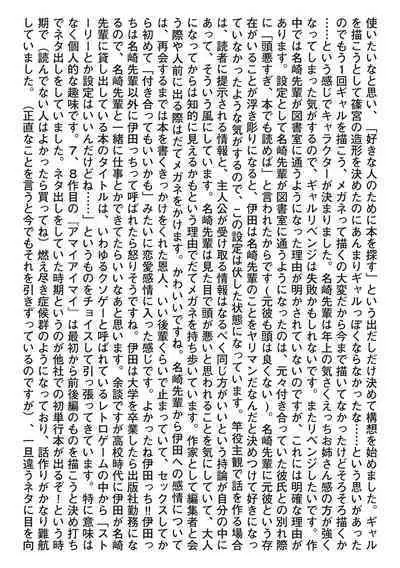 使いたいなと思い、「好きな人のために本を探す」という出だしだけ決めて構想を始めました。ギャル
を描こうとして篠宮の造形を決めたのにあんまりギャルっぽくならなかったな…という思いがあった
のでもう1回ギャルを描こう、メガネって描くの大変だから今まで描いてなかったけどそろそろ描くか
……という感じでキャラクターが決まりました。名崎先輩は年上の気さくえっちお姉さん感の方が強く
なってしまった気がするので、ギャルリベンジは失敗かもしれないです。またリベンジしたいです。作
中では名崎先輩が図書室に通うようになった理由が明かされていないのですが、これには明確な理由が
あります。設定として名崎先輩が図書室に通うようになったのは、元々付き合っていた彼氏との別れ際
に「頭悪すぎ、本でも読めば」と言われたからです(元彼も頭は良くない)。名崎先輩に元彼という存
在がいることが浮き彫りになると、伊田は名崎先輩のことをヤリマンだなんだと決めつけて好きになっ
ていなかったような気がするので、この設定は伏した状態になっています。竿役主観で話を作る場合
は、読者に提示される情報と、主人公が受け取る情報はなるべく同じ方がいいという持論が自分の中に
あって、そういう風にしています。名崎先輩は見た目で頭が悪いと思われることを気にしていて、大人
になってからは知的に見えるかもという理由でだてメガネを持ち歩いています。作家として編集者と会
う際や人前に出る際はだてメガネをかけます。かわいいですね。名崎先輩から伊田への感情について
は、再会するまでは本を書くきっかけをくれた恩人、いい後輩くらいで止まっていて、セックスしてか
ら初めて「付き合ってもいいかも」みたいに恋愛感情に入った感じです。よかったね伊田っち!!伊田っ
ちは名崎先輩以外に伊田っちって呼ばれたら怒りそうですね。伊田は大学を卒業したら出版社勤務にな
るので、名崎先輩と一緒に仕事とかできてたらいいなあと思います。余談ですが高校時代に伊田が名崎
先輩に貸し出している本のタイトルは、いわゆるクソゲーと呼ばれているレトロゲームの中から「スト
ーリーとか設定はいいんだけどね……」というものをチョイスして引っ張ってきています。特に意味は
なく個人的な趣味です。7、8作目の「アマイアマイ」は最初から前後編のものを描こうと決め打ち
でネタ出しをしていました。ネタ出しをしていた時期というのが他社での初単行本が出るぞ！という時
期で(読んでない人はよかったら買ってね)燃え尽き症候群のようになっており、話作りがかなり難航
していました。(正直なことを言うと今でもそれを引きずっているのですが)一旦違うネタに目を向